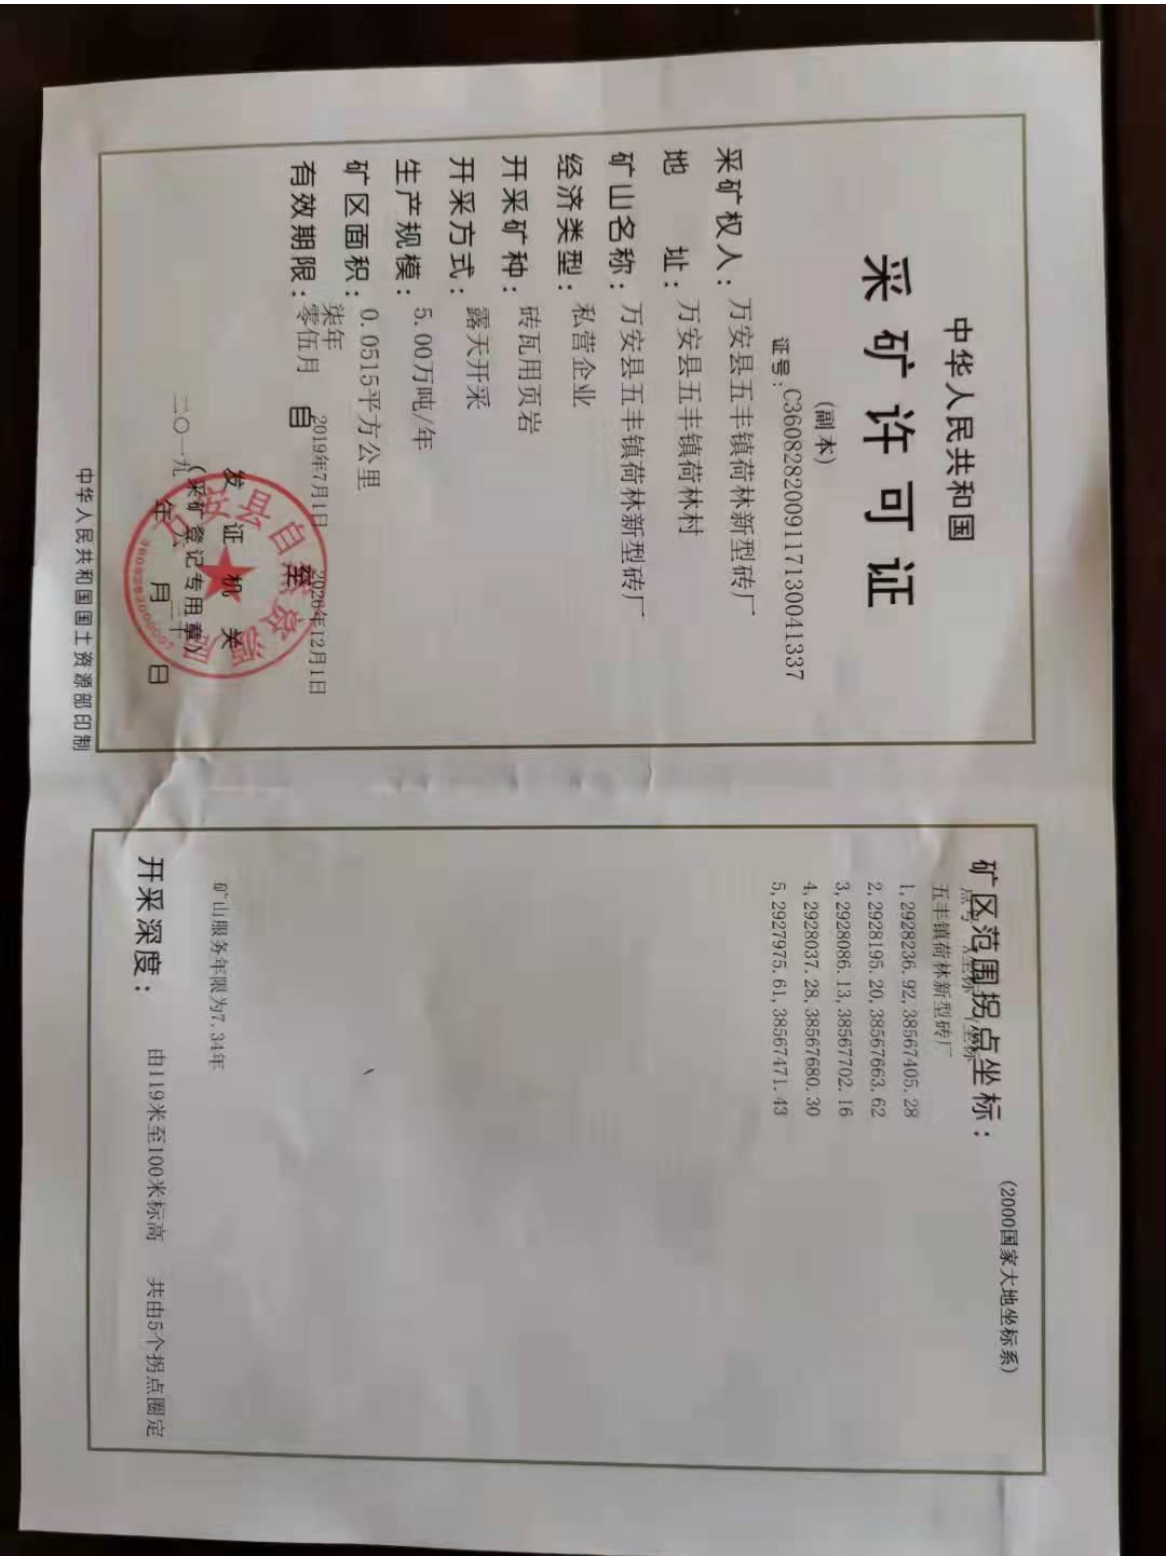 中华人民共和国
采矿许可证
(副本)
证号:C3608282009117130041337
采矿权人:万安县五丰镇荷林新型砖厂
地 址:万安县五丰镇荷林村
矿山名称:万安县五丰镇荷林新型砖厂
经济类型:私营企业
开采矿种:砖瓦用页岩
开采方式:露天开采
生产规模:5.00万吨/年
矿区面积:0.0515平方公里
有效期限:柒年零伍月 自2019年7月1日至2026年12月1日
发证机关
(采矿登记专用章)
二〇一九年 月 日
万安县自然资源局
中华人民共和国国土资源部印制
矿区范围拐点坐标: (2000国家大地坐标系)
五丰镇荷林新型砖厂
1,2928236.92,38567405.28
2,2928195.20,38567663.62
3,2928086.13,38567702.16
4,2928037.28,38567680.30
5,2927975.61,38567471.43
矿山服务年限为7.34年
开采深度: 由119米至100米标高 共由5个拐点圈定